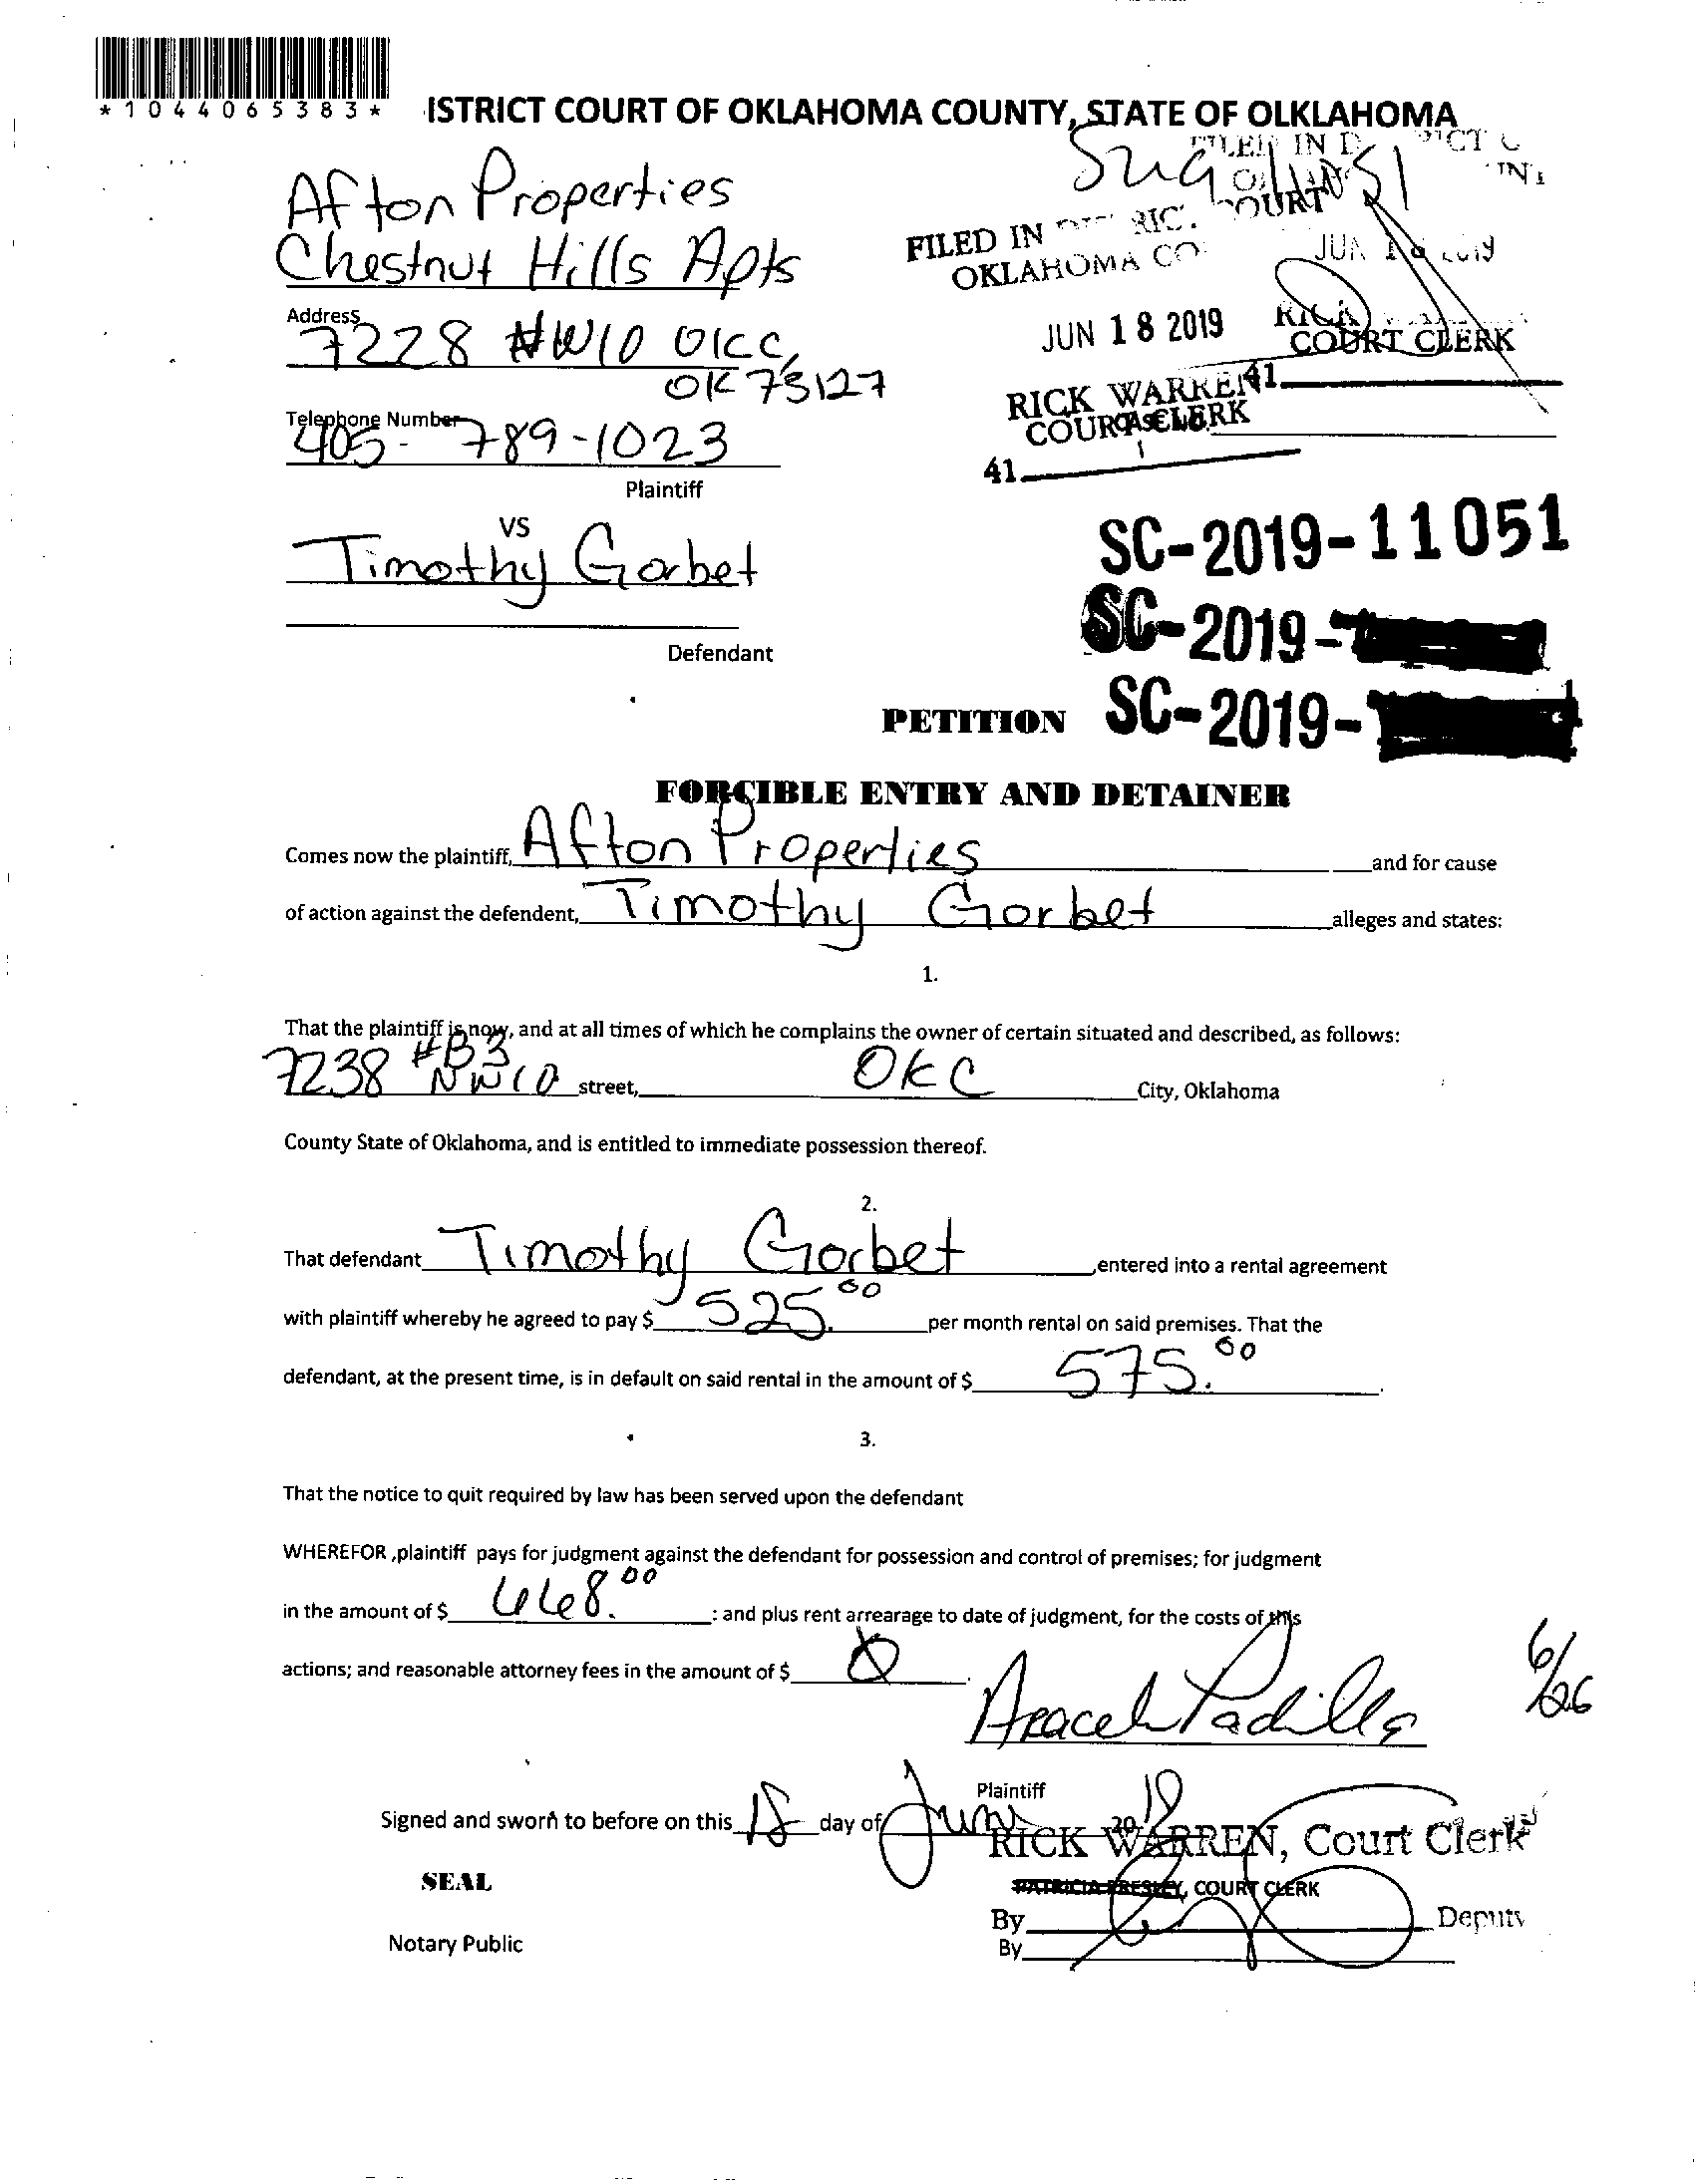 *1044065383*
ISTRICT COURT OF OKLAHOMA COUNTY, STATE OF OLKLAHOMA
Afton Properties
Chestnut Hills Apts
Address
7228 NW10 OKC,
OK 73127
Telephone Number
405-789-1023
Plaintiff
VS
Timothy Gorbet
Defendant
FILED IN
OKLAHOMA CO
JUN 18 2019
RICK WARREN
COURT CLERK
41
COURT
JUN
RICK
COURT CLERK
41
CASE NO.
SC-2019-11051
SC-2019-
SC-2019-
PETITION
FORCIBLE ENTRY AND DETAINER
Comes now the plaintiff, Afton Properties and for cause
of action against the defendent, Timothy Gorbet alleges and states:
1.
That the plaintiff is now, and at all times of which he complains the owner of certain situated and described, as follows:
7238 #B3 NW10 street, OKC City, Oklahoma
County State of Oklahoma, and is entitled to immediate possession thereof.
2.
That defendant Timothy Gorbet ,entered into a rental agreement
with plaintiff whereby he agreed to pay $ 525.00 per month rental on said premises. That the
defendant, at the present time, is in default on said rental in the amount of $ 575.00.
3.
That the notice to quit required by law has been served upon the defendant
WHEREFOR ,plaintiff pays for judgment against the defendant for possession and control of premises; for judgment
in the amount of $ 668.00 : and plus rent arrearage to date of judgment, for the costs of this
actions; and reasonable attorney fees in the amount of $ 0.
Araceli Padilla
6/26
Plaintiff
Signed and sworn to before on this 18 day of Jun 2019
RICK WARREN, Court Clerk
SEAL
PATRICIA PRESLEY, COURT CLERK
By Deputy
Notary Public
By